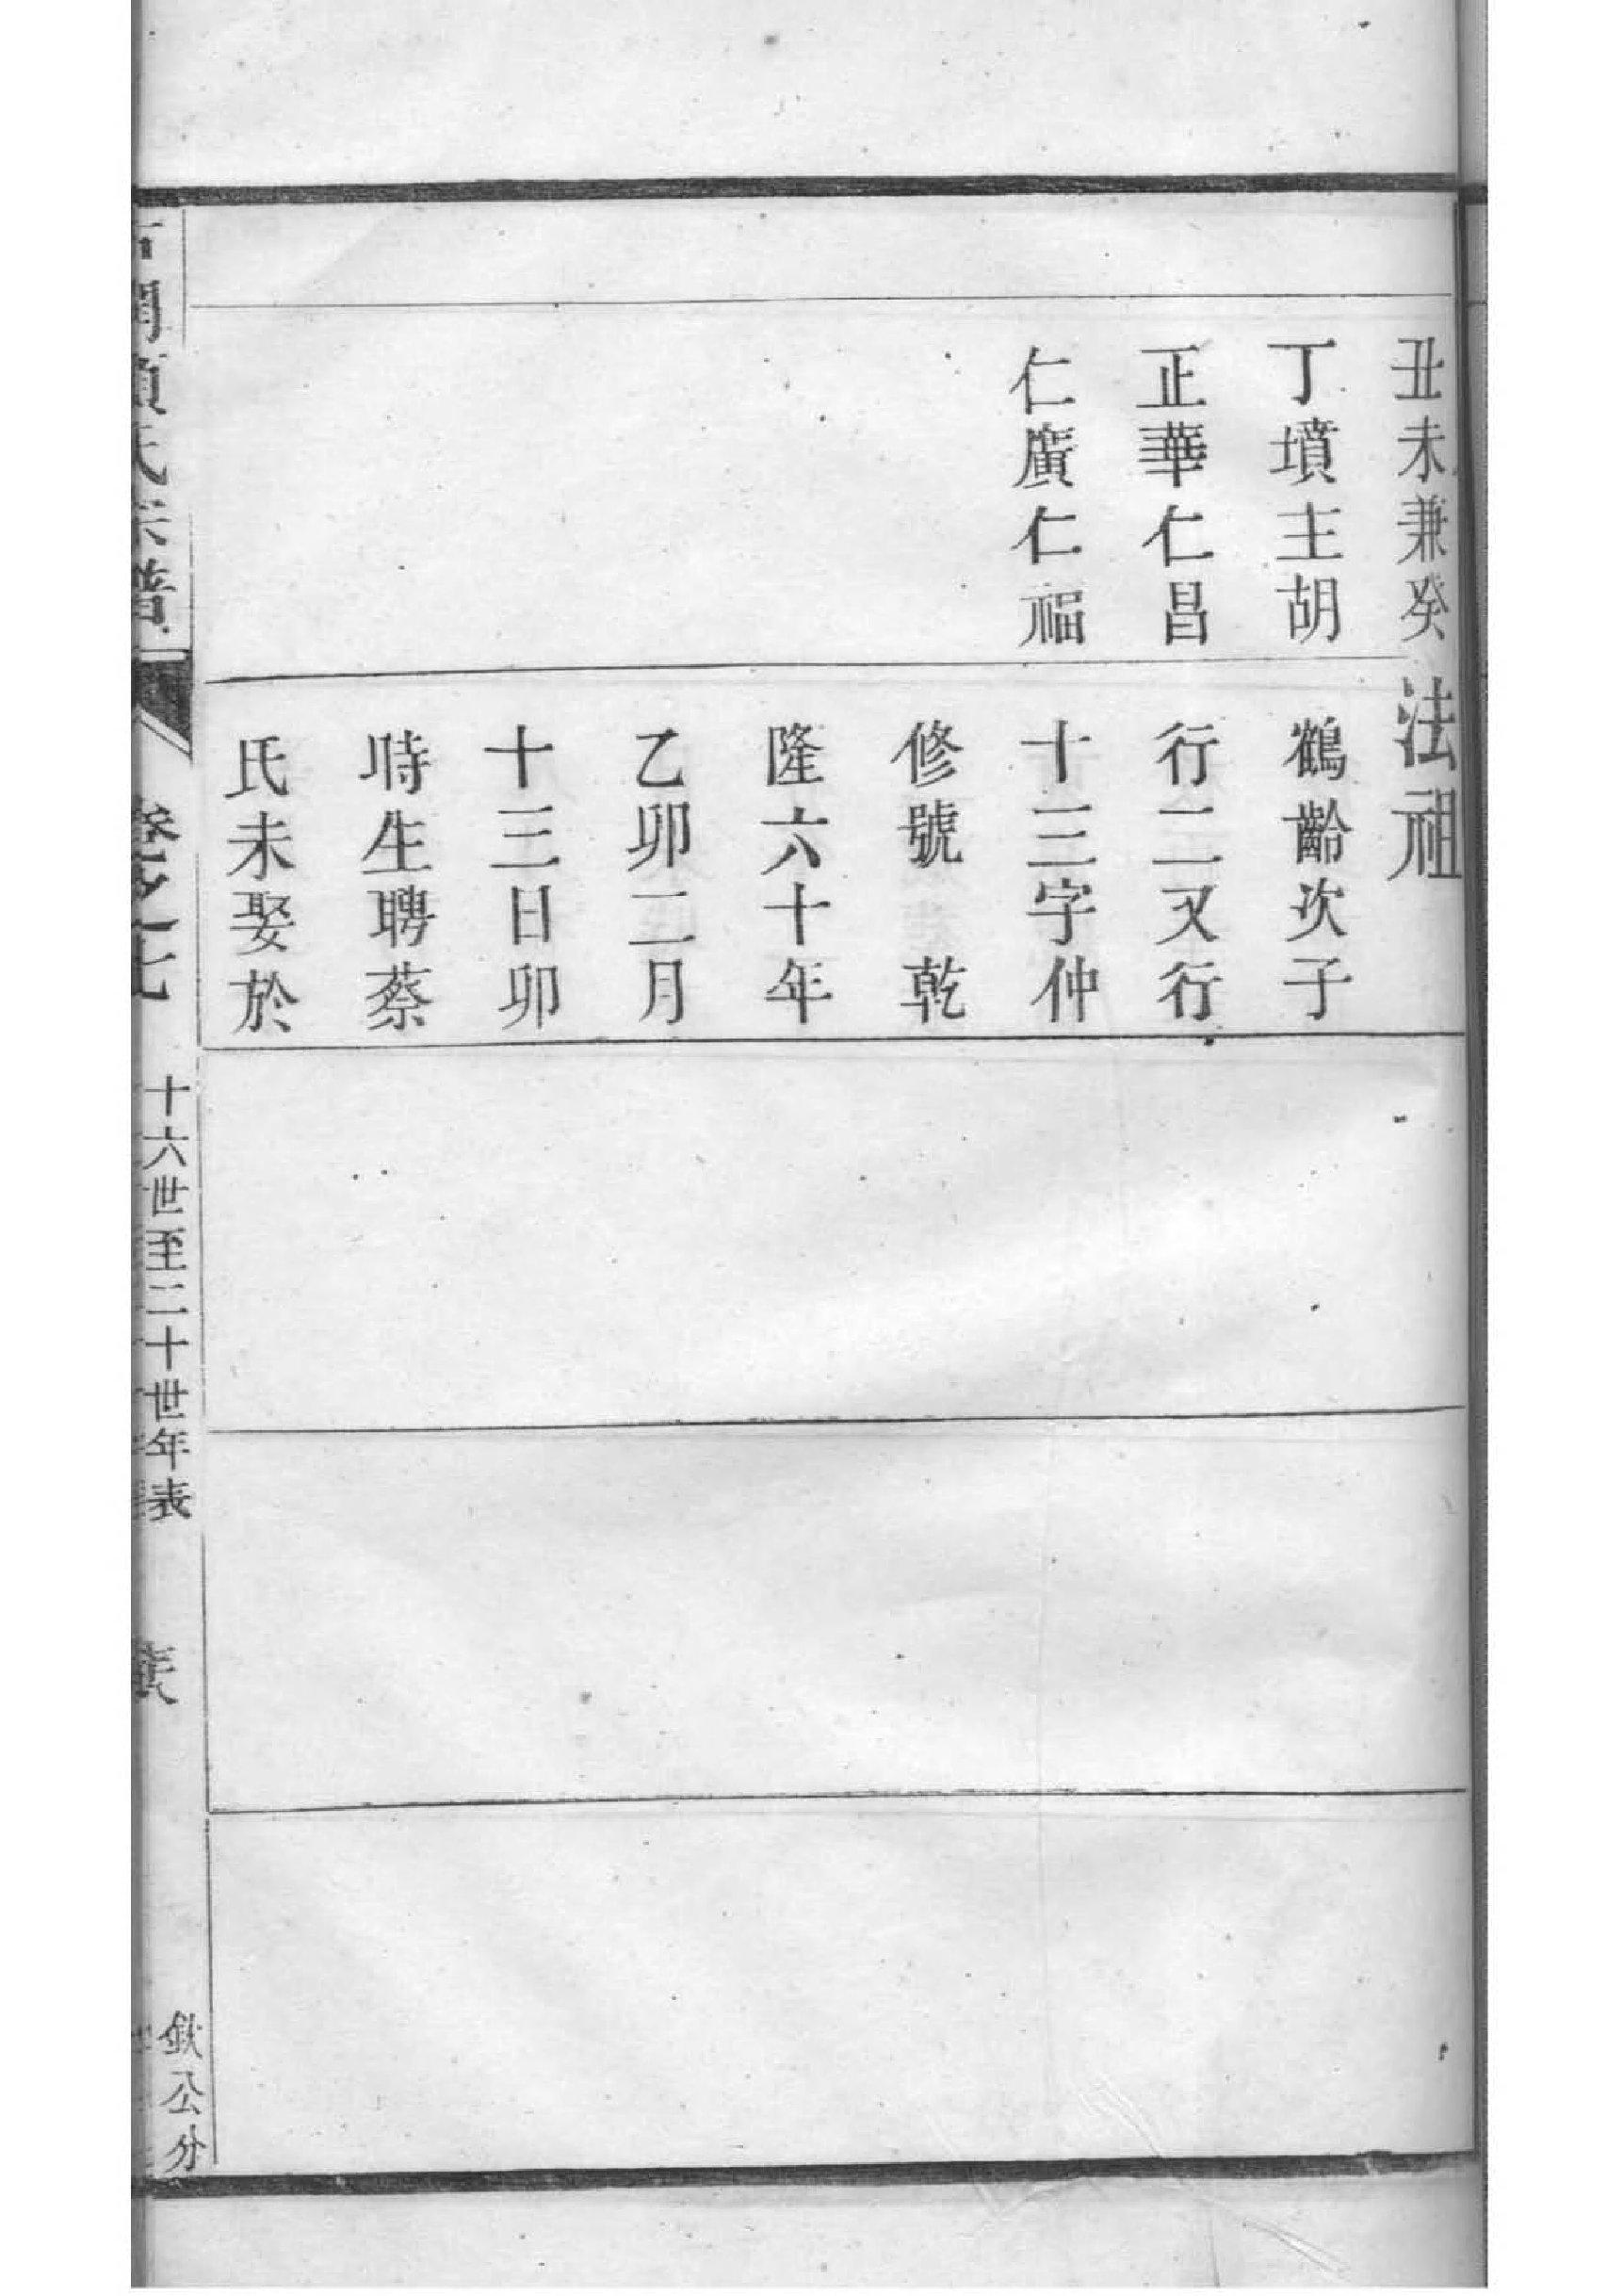 丑未兼癸
丁墳主胡
正華仁昌
仁廣仁福
法祖
鶴齡次子
行二又行
十三字仲
修號乾
隆六十年
乙卯二月
十三日卯
時生聘蔡
氏未娶於
氏宗譜
卷之七
十六世至二十世年表
欽公分